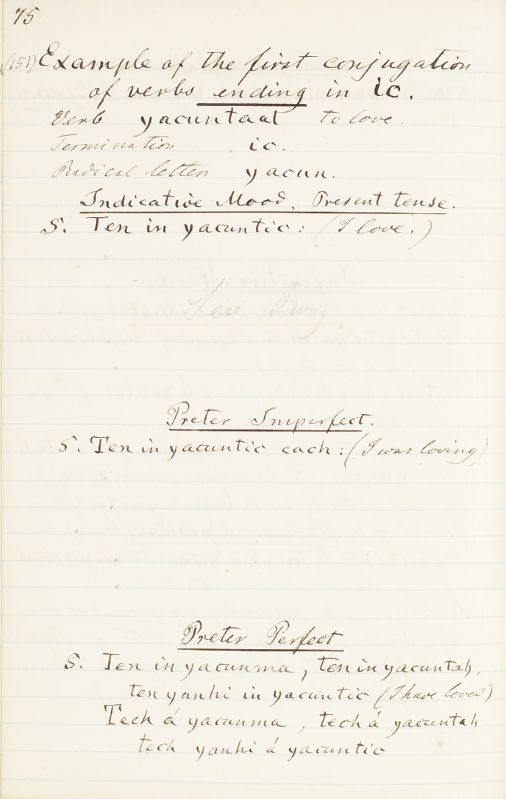 75
(151) Example of the first conjugation
of verbs ending in ic.
Verb yacuntaal to love.
Termination ic.
Radical letters yacun.
Indicative Mood. Present tense.
S. Ten in yacuntic: (I love.)
Preter Imperfect.
S. Ten in yacuntic cach: (I was loving)
Preter Perfect
S. Ten in yacunma, ten in yacuntah,
ten yanhi in yacuntic (I have loved)
Tech á yacunma, tech á yacuntah
tech yanhi á yacuntic